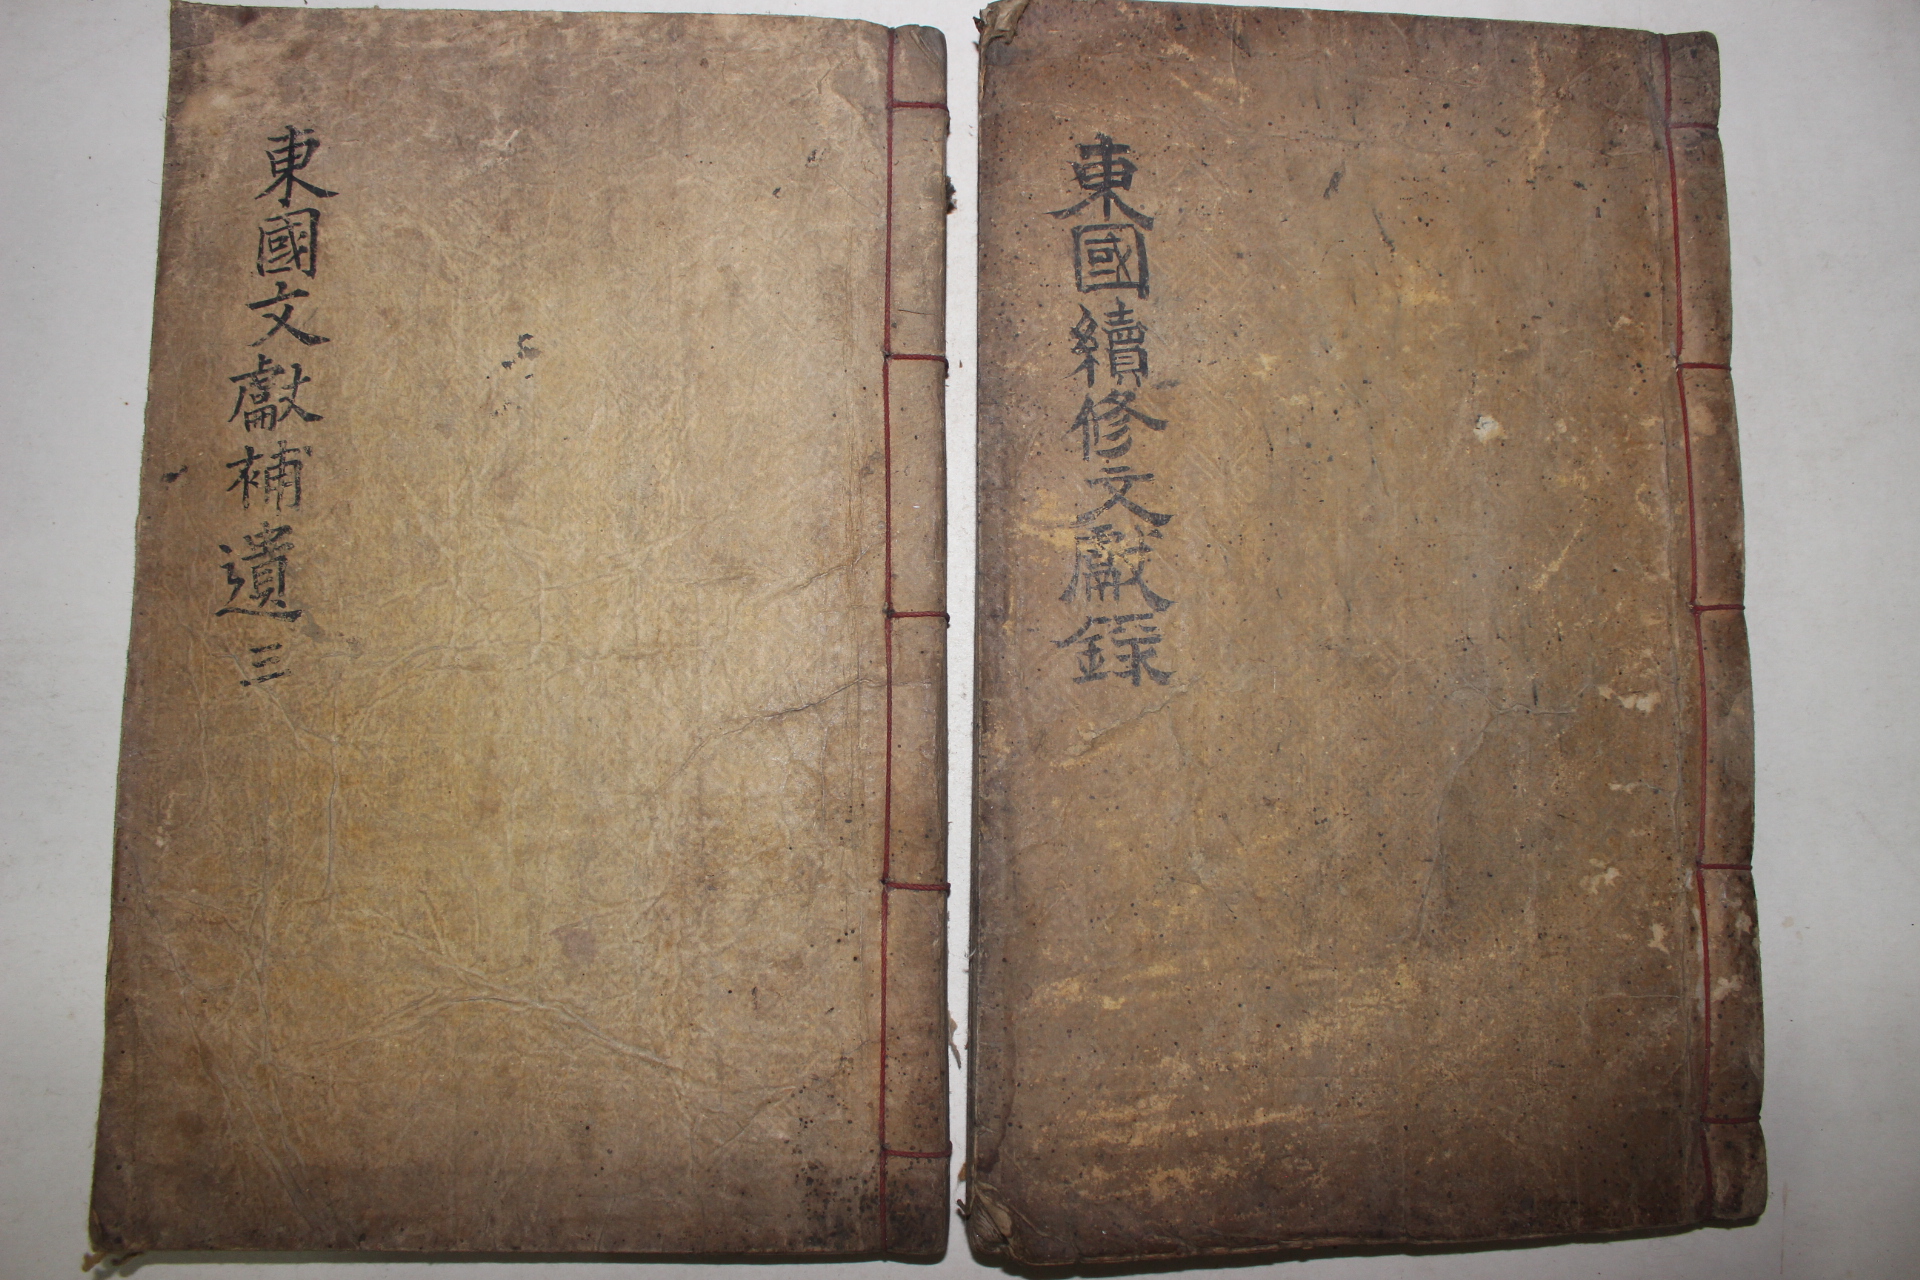 東國文獻補遺 三
東國續修文獻錄